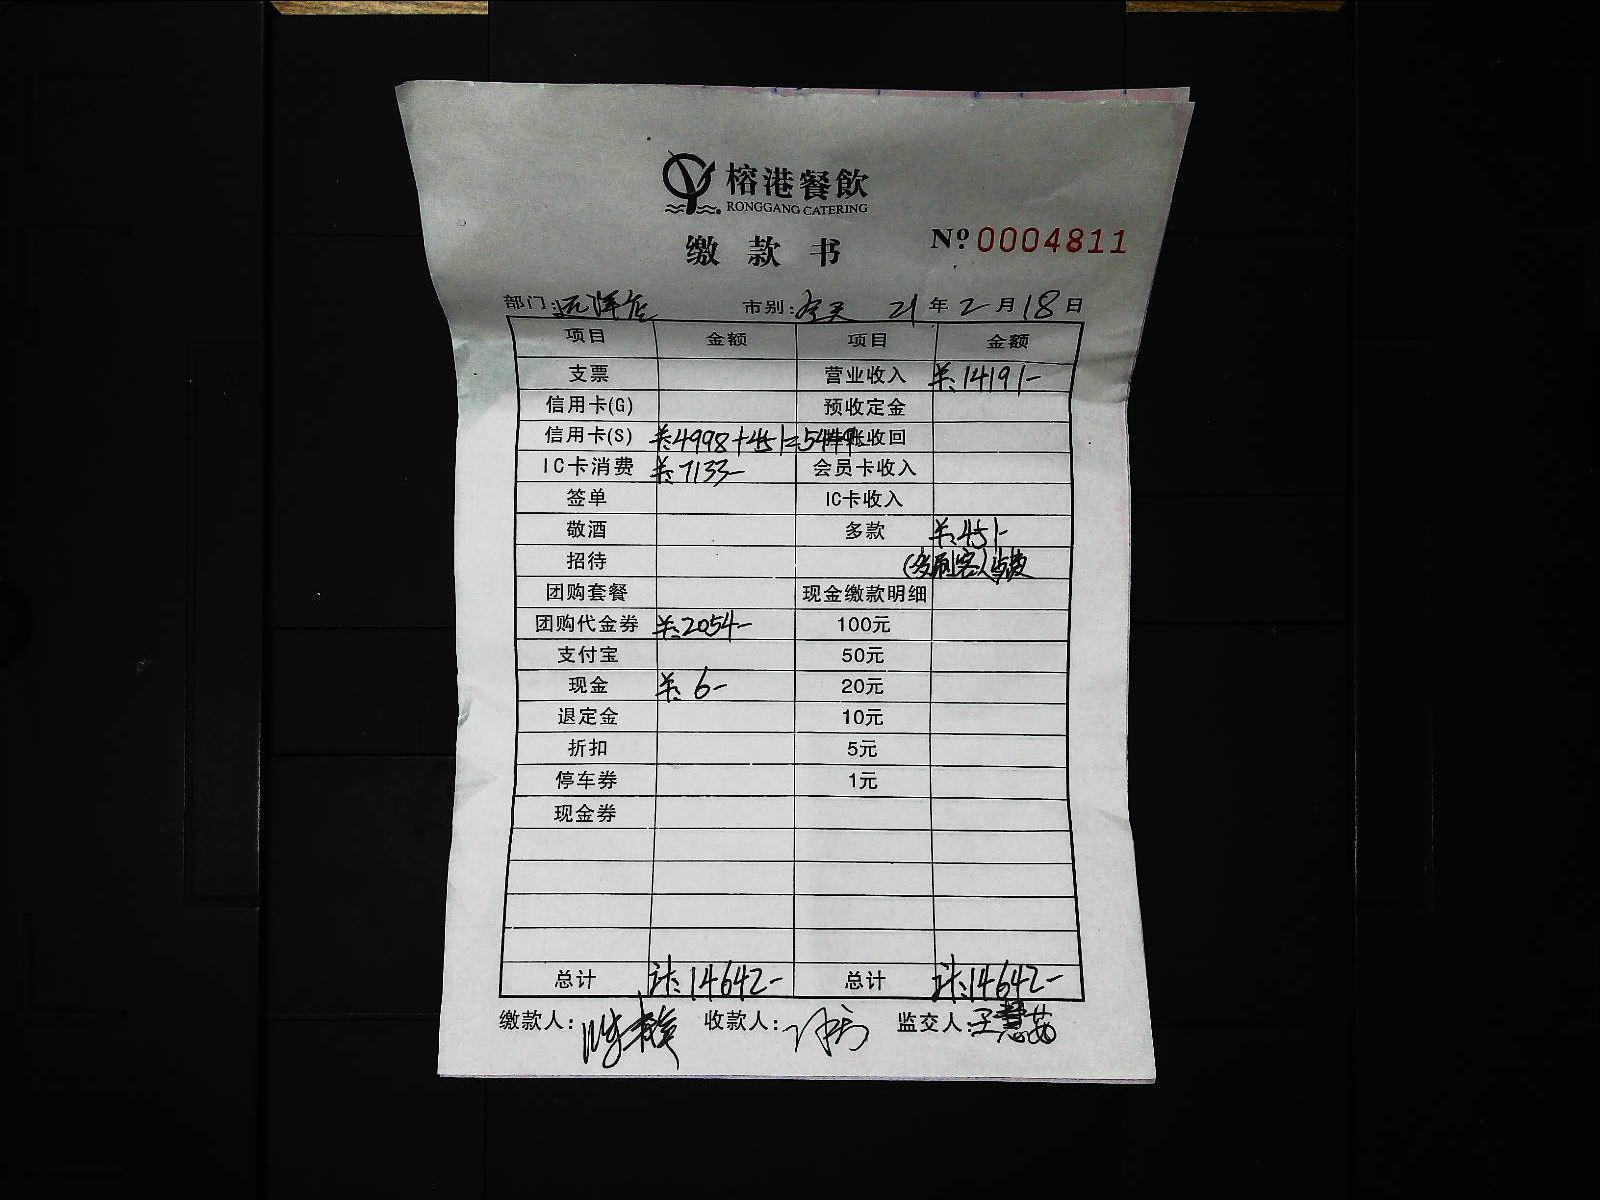 榕港餐飲
RONGGANG CATERING
缴款书 Nº 0004811
部门: 远洋店 市别: 全天 21年2月18日
项目 金额 项目 金额
支票 营业收入 羊:14191-
信用卡(G) 预收定金
信用卡(S) 羊:4998+451=5449- 账收回
IC卡消费 羊:7133- 会员卡收入
签单 IC卡收入
敬酒 多款 羊:451-
招待 (多刷客人
团购套餐 现金缴款明细
团购代金券 羊:2054- 100元
支付宝 50元
现金 羊:6- 20元
退定金 10元
折扣 5元
停车券 1元
现金券
总计 计:14642- 总计 计:14642-
缴款人: 收款人: 监交人: 王慧茹